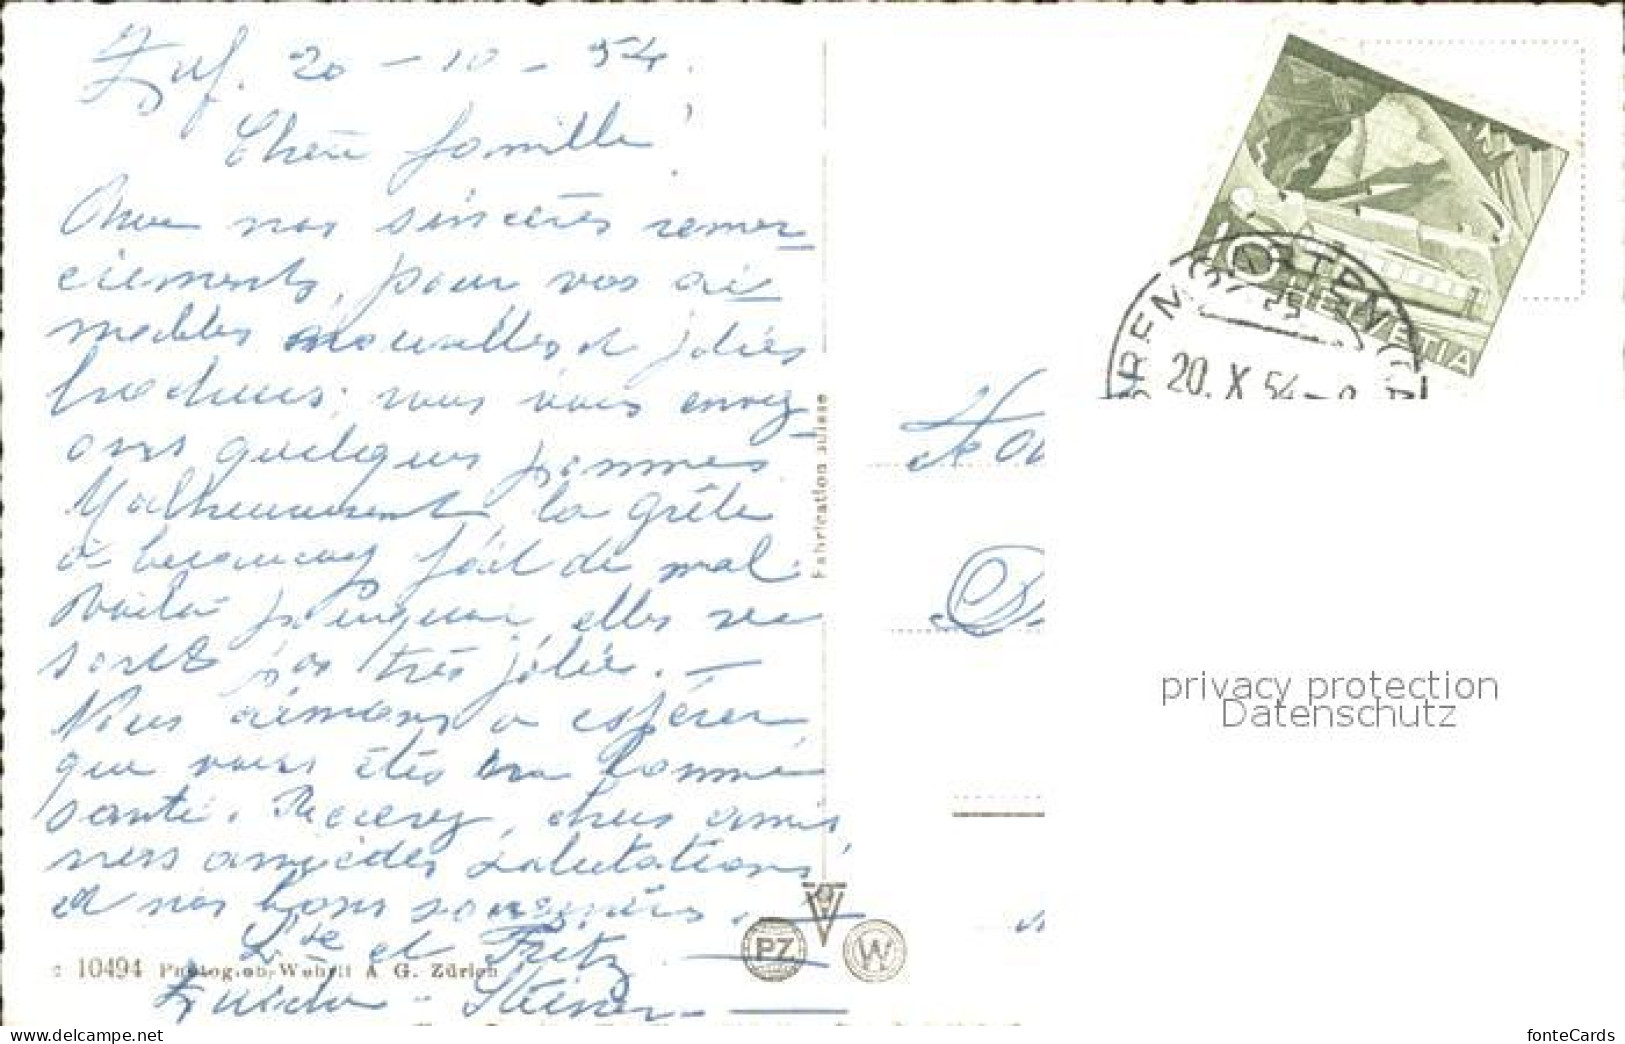 20 - 10 - 54.
Chère famille !
Avec nos sincères remer-
ciements, pour vos ai-
mables nouvelles et jolies
nous vous envoy-
ons quelques pommes
Malheureusement, la grêle
a beaucoup fait de mal.
Voilà pourquoi, elles ne
sont pas très jolies. —
Nous aimons a espérer,
que vous êtes en bonne
santé. Recevez, chers amis,
nos amicales salutations,
et nos bons souvenirs.
et Fritz
Steiner
10494 Photoglob-Wehrli A G. Zürich
Fabrication suisse
PZ
W
10
HELVETIA
20. X. 54
privacy protection
Datenschutz
www.delcampe.net
fonteCards